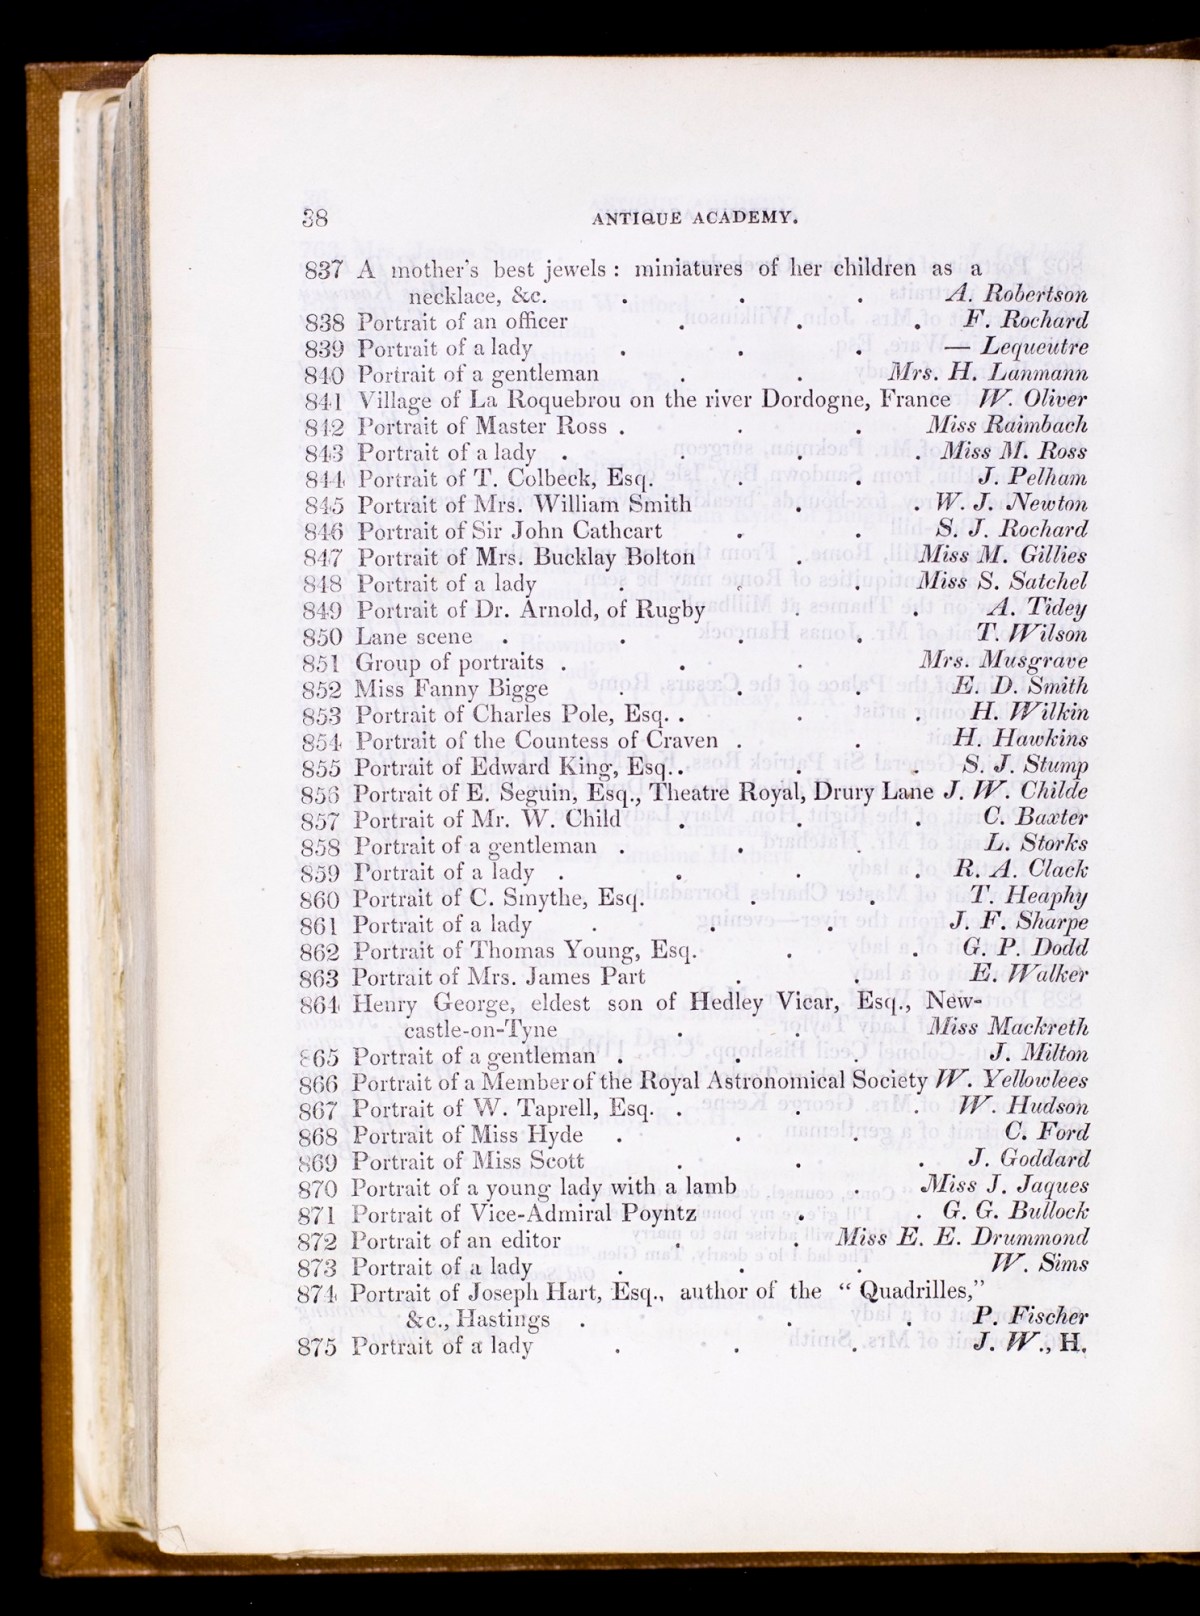 38 ANTIQUE ACADEMY.
837 A mother's best jewels : miniatures of her children as a
necklace, &c. . . . A. Robertson
838 Portrait of an officer . . . F. Rochard
839 Portrait of a lady . . . — Lequeutre
840 Portrait of a gentleman . . Mrs. H. Lanmann
841 Village of La Roquebrou on the river Dordogne, France W. Oliver
842 Portrait of Master Ross . . . Miss Raimbach
843 Portrait of a lady . . . . Miss M. Ross
844 Portrait of T. Colbeck, Esq. . . J. Pelham
845 Portrait of Mrs. William Smith . . W. J. Newton
846 Portrait of Sir John Cathcart . . S. J. Rochard
847 Portrait of Mrs. Bucklay Bolton . Miss M. Gillies
848 Portrait of a lady . . . Miss S. Satchel
849 Portrait of Dr. Arnold, of Rugby . . A. Tidey
850 Lane scene . . . . T. Wilson
851 Group of portraits . . . Mrs. Musgrave
852 Miss Fanny Bigge . . . E. D. Smith
853 Portrait of Charles Pole, Esq. . . . H. Wilkin
854 Portrait of the Countess of Craven . . H. Hawkins
855 Portrait of Edward King, Esq. . . . S. J. Stump
856 Portrait of E. Seguin, Esq., Theatre Royal, Drury Lane J. W. Childe
857 Portrait of Mr. W. Child . . . C. Baxter
858 Portrait of a gentleman . . . L. Storks
859 Portrait of a lady . . . . R. A. Clack
860 Portrait of C. Smythe, Esq. . . T. Heaphy
861 Portrait of a lady . . . J. F. Sharpe
862 Portrait of Thomas Young, Esq. . . G. P. Dodd
863 Portrait of Mrs. James Part . . E. Walker
864 Henry George, eldest son of Hedley Vicar, Esq., New-
castle-on-Tyne . . Miss Mackreth
865 Portrait of a gentleman . . . J. Milton
866 Portrait of a Member of the Royal Astronomical Society W. Yellowlees
867 Portrait of W. Taprell, Esq. . . . W. Hudson
868 Portrait of Miss Hyde . . . C. Ford
869 Portrait of Miss Scott . . . J. Goddard
870 Portrait of a young lady with a lamb . Miss J. Jaques
871 Portrait of Vice-Admiral Poyntz . . G. G. Bullock
872 Portrait of an editor . . Miss E. E. Drummond
873 Portrait of a lady . . . W. Sims
874 Portrait of Joseph Hart, Esq., author of the “ Quadrilles,”
&c., Hastings . . . P. Fischer
875 Portrait of a lady . . . J. W., H.